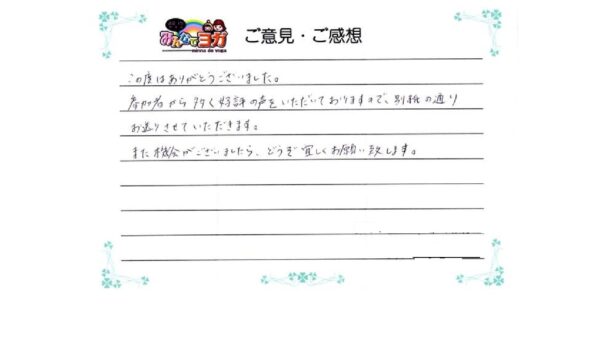 みんなでヨガ
minna de yoga
ご意見・ご感想
この度はありがとうございました。
参加者から多く好評の声をいただいておりますので、別紙の通り
お送りさせていただきます。
また機会がございましたら、どうぞ宜しくお願い致します。